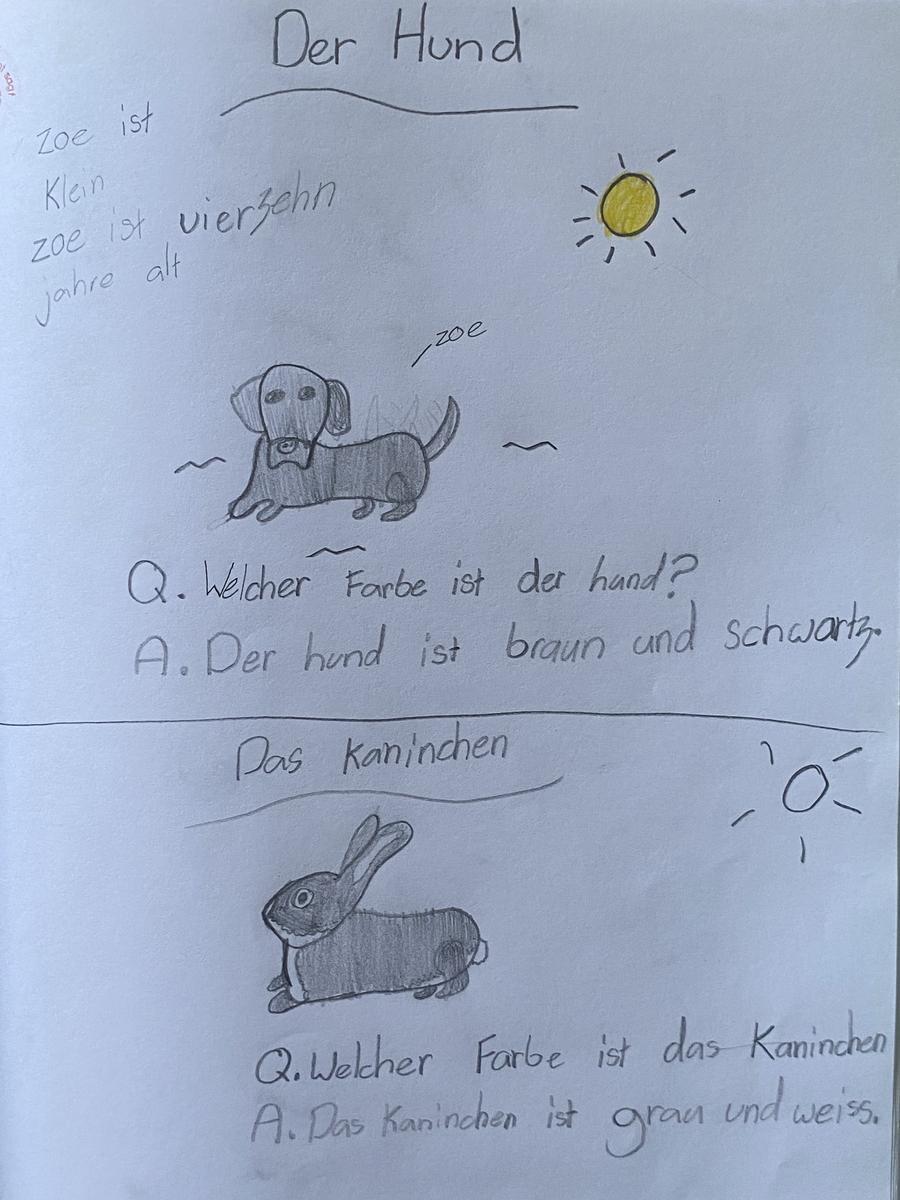 Der Hund
zoe ist
Klein
zoe ist vierzehn
jahre alt
zoe
Q. Welcher Farbe ist der hund?
A. Der hund ist braun und schwartz.
Das Kaninchen
Q. Welcher Farbe ist das Kaninchen
A. Das Kaninchen ist grau und weiss.